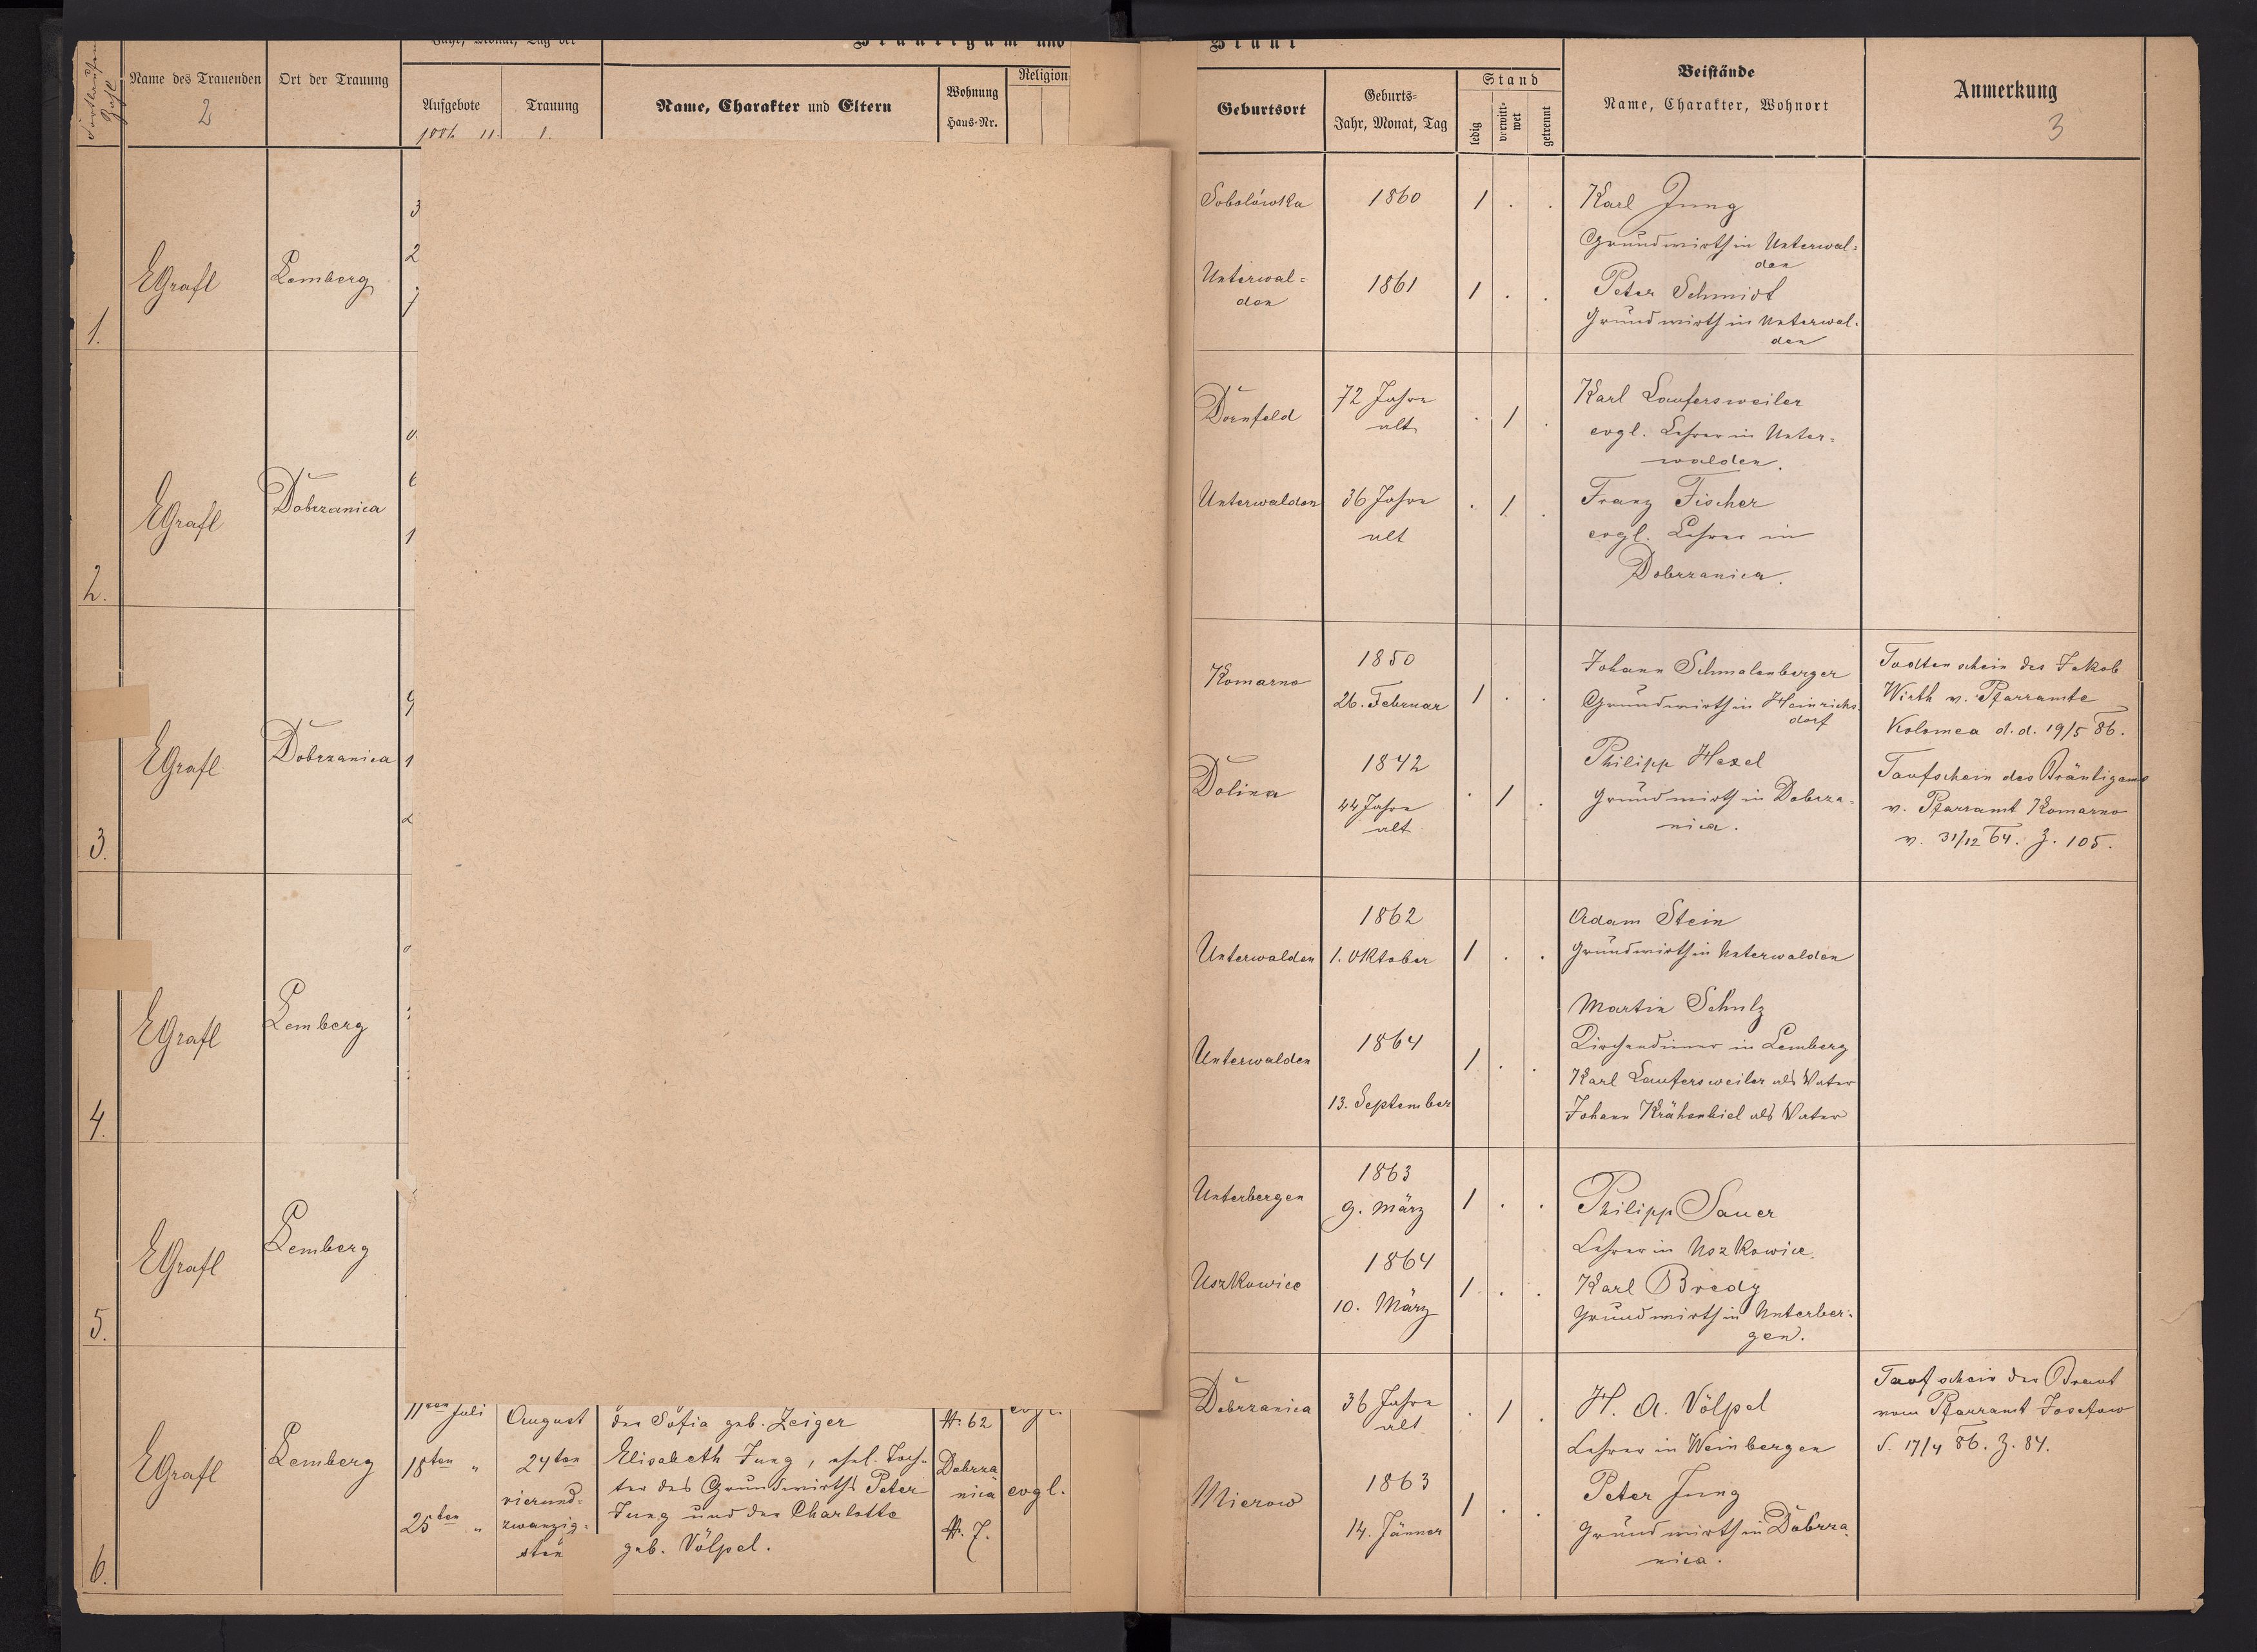 Name des Trauenden
2
Ort der Trauung
Jahr, Monat, Tag der
Aufgebote
Trauung
1886
Bräutigam und
Name, Charakter und Eltern
Wohnung
Haus-Nr.
Religion
Braut
Geburtsort
Geburts-
Jahr, Monat, Tag
Stand
ledig
verwit-
wet
getrennt
Beistände
Name, Charakter, Wohnort
Anmerkung
3
1.
EGrafl
Lemberg
Sobolówka
1860
1 . .
Karl Jung
Grundwirth in Unterwal-
den
Unterwal-
den
1861
1 . .
Peter Schmidt
Grundwirth in Unterwal-
den
2.
EGrafl
Dobrzanica
Dornfeld
72 Jahre
alt
. 1 .
Karl Laufersweiler
evgl. Lehrer in Unter-
walden.
Unterwalden
36 Jahre
alt
. 1 .
Franz Fischer
evgl. Lehrer in
Dobrzanica.
3.
EGrafl
Dobrzanica
Komarno
1850
26. Februar
1 . .
Johann Schmalenberger
Grundwirth in Heinrichs-
dorf
Todtenschein des Jakob
Wirth v. Pfarramte
Kolomea d. d. 19/5 86.
Dolina
1842
44 Jahre
alt
. 1 .
Philipp Hexel
Grundwirth in Dobrza-
nica.
Taufschein des Bräutigams
v. Pfarramt Komarno
v. 31/12 64. Z. 105.
4.
EGrafl
Lemberg
Unterwalden
1862
1. Oktober
1 . .
Adam Stein
Grundwirth in Unterwalden
Unterwalden
1864
13. September
1 . .
Martin Schulz
Kirchendiener in Lemberg
Karl Laufersweiler als Vater
Johann Krähenbiel als Vater
5.
EGrafl
Lemberg
Unterbergen
1863
9. März
1 . .
Philipp Sauer
Lehrer in Uszkowice.
Uszkowice
1864
10. März
1 . .
Karl Bredy
Grundwirth in Unterber-
gen.
6.
EGrafl
Lemberg
11ten Juli
August
der Sofia geb. Zeiger
Nr. 62
evgl.
18ten "
24ten
Elisabeth Jung, ehel. Toch-
Dobrza
vierund-
ter des Grundwirths Peter
nica
evgl.
25ten "
zwanzig-
Jung und der Charlotte
Nr. 7.
sten
geb. Völpel.
Dobrzanica
36 Jahre
alt
. 1 .
H. A. Völpel
Lehrer in Weinbergen
Taufschein der Braut
vom Pfarramt Josefow
d. 17/4 86. Z. 84.
Mierow
1863
14. Jänner
1 . .
Peter Jung
Grundwirth in Dobrza
nica.